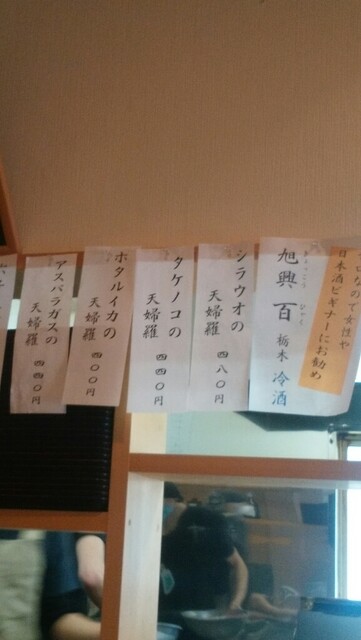 なので女性や
日本酒ビギナーにお勧め
旭興 百 栃木 冷酒
きょっこう ひゃく
シラウオの
天婦羅 四八〇円
タケノコの
天婦羅 四四〇円
ホタルイカの
天婦羅 四〇〇円
アスパラガスの
天婦羅 四四〇円